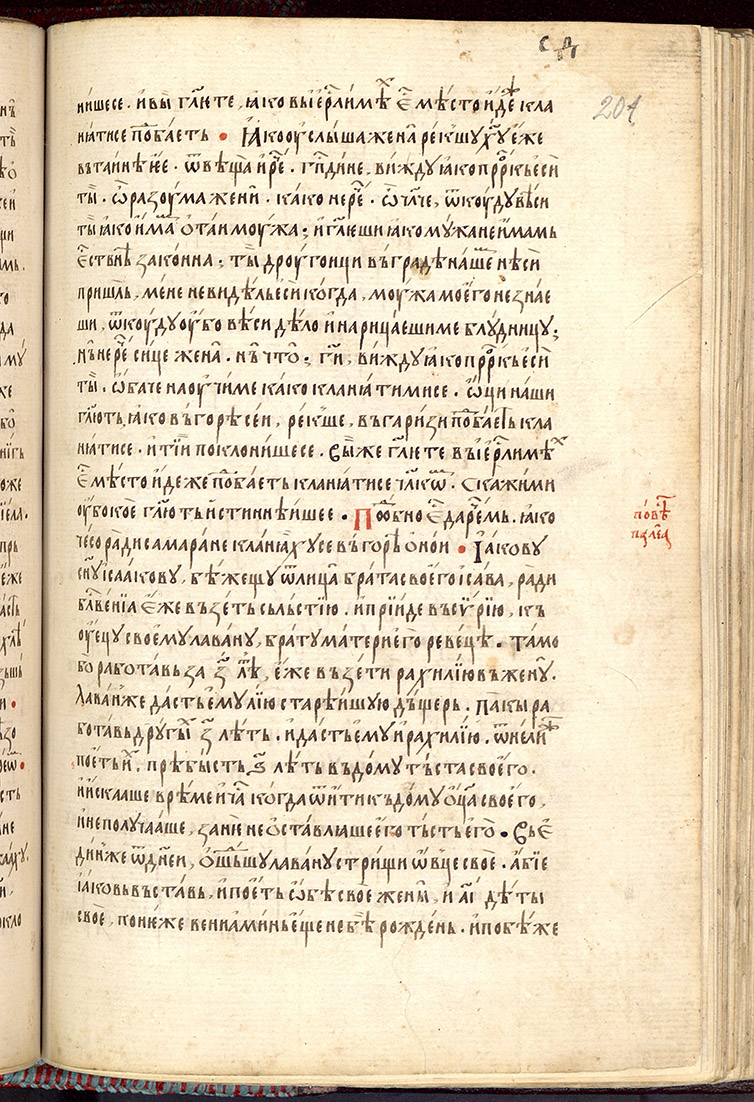 с҃д
204
ни́шесе · и҆ вы̀ гл҃ѥте , ꙗ҆ко въі ѥр҃лимѣⷯ є҆ⷭ мѣ́сто и҆дѣ́же кла
нꙗ́тисе поⷣба́еть · Ꙗ҆́ко оу҆слы́ша жена̀ ре́кшу хⷭ҇у є҆́же
въ та́инѣ ѥѐ · ѿвѣща̀ и҆ реⷱ҇ · гпⷭ҇ди́не , ви́жду ꙗ҆ко прⷪ҇ркь є҆сѝ
ты̀ · ѽ ра́зоума жени̏ · ка́ко не реⷱ҇ · ѽ чл҃че , ѿкоу́ду вѣ́си
ты̀ ꙗ҆ко и҆́маⷨ ѻ҆таи моу́жа ; и҆ гл҃ѥши ꙗ҆ко му́жа не и҆́мамь
є҆ⷭтвнѣ зако́нна ; ты̀ дроу́гонщи въ гра́дѣ на́шеⷨ нѣ́си
пришьⷧ , ме́не не ви́дѣль є҆сѝ ко́гда , моу́жа моѥ҆го не зна́е
ши , ѿкоу́ду оу҆бо вѣ́си дѣ́ло и҆ нари́цаеши ме блу́дницу ;
нъ̀ не реⷱ҇ си́це жена̀ · нъ̀ что̀ ; гⷭ҇и , ви́жду ꙗ҆ко прⷪ҇ркь є҆сѝ
ты̀ · ѽба́че наоу́чи ме ка́ко кла́нꙗти ми се · ѽ҆ци на́ши
гл҃ють ꙗ҆ко въ го́рѣ се́и , ре́кше , въ гари́зи поⷣба́еть кла
нꙗ́тисе · и҆ ті́и поклони́шесе · Вы́ же гл҃ѥте въ і ѥр҃лимѣⷯ
є҆ⷭ мѣ́сто и҆де́же поⷣба́еть кла́нꙗтисе чл҃кѡⷨ · Скажи́ ми
оу҆бо коѐ гл҃ю́ть и҆́стиннѣишее · Поⷣбно є҆ⷭ да рече́мь · ꙗ҆ко
че́со ра́ди самара́не кла́нꙗхусе въ го́рѣ ѻ҆но́и · І҆а́кову
сн҃у і҆саа́кову , бѣже́щу ѿ лица̀ бра́та своѥ҆го і҆са́ва , ра́ди
блⷭ҇ве́нїа є҆́же възе́ть сь льстїю · и҆ прїи́де въ сѵ́рїю , къ
оу҆́ецу своѥму лава́ну , бра́ту ма́тери ѥго̀ реве́щѣ · та́мо
бо рабо́тавь за ꙁ҃ лѣⷮ , є҆́же възе́ти рахи́лїю въ жену̀ ·
Лава́н же да́сть ѥ҆му лі́ю старѣ́ишую дъ́щерь · па́кы ра
бо́тавь дру́гыⷯ ꙁ҃ лѣ́ть · и҆ да́сть ѥ҆му и҆ рахи́лїю · ѿне́лиⷤ
пое́ть и҆ⷯ , прѣ́бысть ꙁ҃ лѣ́ть въ до́му тъ́ста своѥ҆го ·
и҆ и҆́скааше врѣ́ме и҆ чⷭ҇а ко́гда ѿи́ти къ до́му ѻ҆ц҃а своѥ҆го ,
и҆ не получа́аше , за́нѥ не ѻ҆ставлꙗ́ше є҆го тъ́сть ѥго̀ · Въ є҆
ди́н же ѿ дне́и , ѻ҆ше́дьшу лава́ну стри́щи ѻ҆вце своѐ · а҆́бїе
і҆а́ковь въста́вь , и҆ пое́ть ѻ҆бѣ своѐ женѝ , и҆ а҃і дѣ́ты
своѐ , поню́же венїами́нь ѥще не бѣ̀ рожде́нь · и҆ побѣ́же
по́вѣⷭ
пале́а